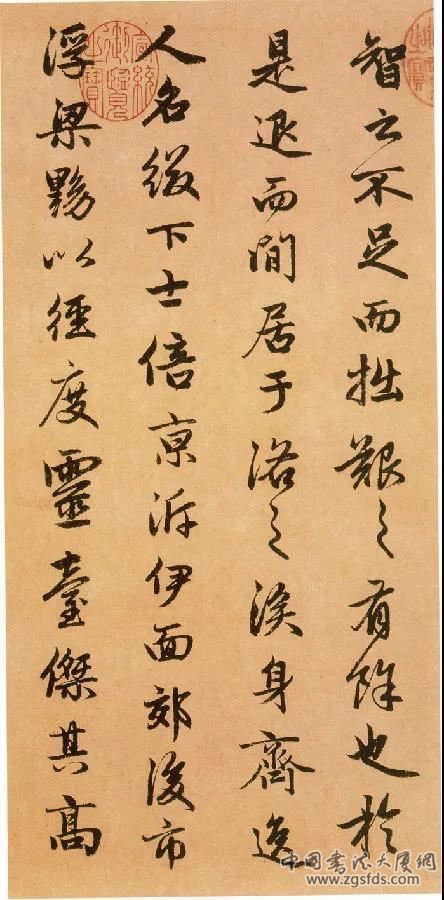 智之不足而拙艱之有餘也於
是退而閒居于洛之涘身齊逸
人名綴下士倍京泝伊面郊後市
浮梁黝以徑度靈臺傑其高
宣統御覽之寶
中国书法大厦网
www.zgsfds.com